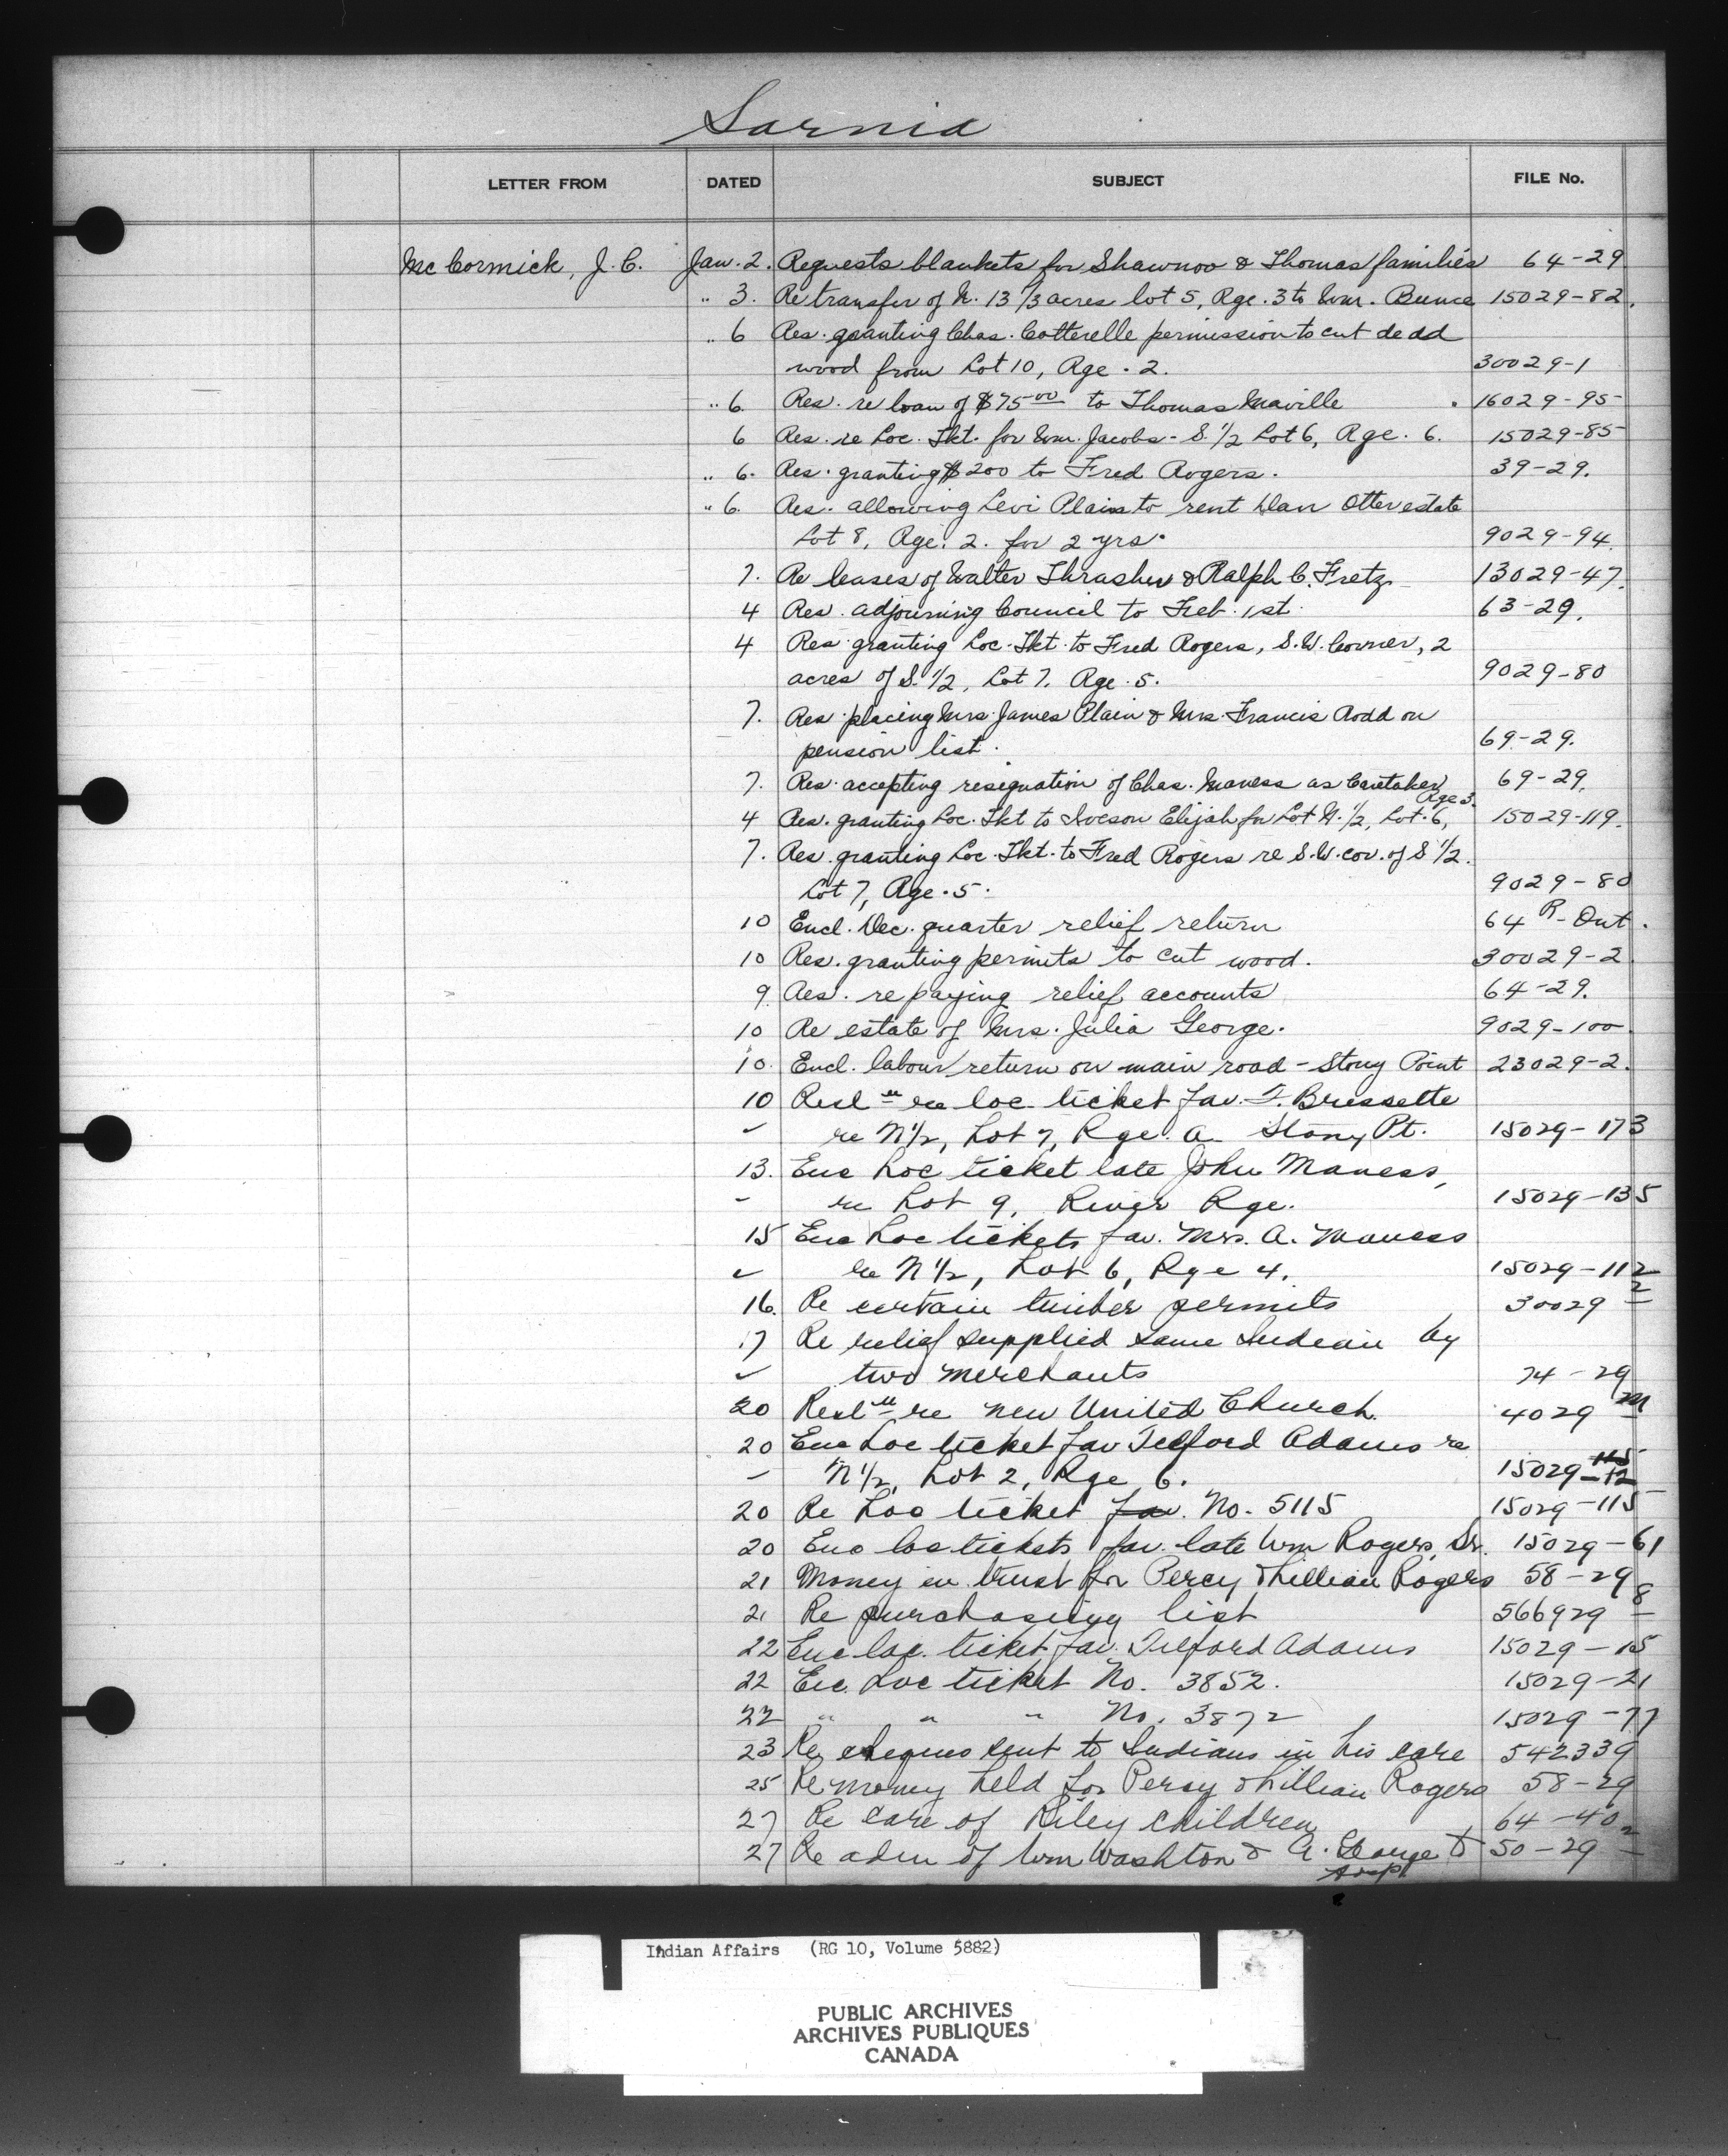 Sarnia
LETTER FROM DATED SUBJECT FILE No.
McCormick, J. C. Jan. 2. Requests blankets for Shawnoo & Thomas families 64-29
" 3. Re transfer of N. 13 1/3 acres lot 5, Rge. 3 to Wm. Bunce 15029-82.
" 6 Res. granting Chas. Cotterelle permission to cut dead
wood from Lot 10, Rge. 2. 30029-1
" 6. Res. re loan of $75 00 to Thomas Maville 16029-95
6 Res. re Loc. Tkt. for Wm. Jacobs - S. 1/2 Lot 6, Rge. 6. 15029-85
" 6. Res. granting $200 to Fred Rogers. 39-29.
" 6. Res. allowing Levi Plain to rent Dan Otter estate
Lot 8, Rge. 2. for 2 yrs. 9029-94.
7. Re leases of Walter Thrasher & Ralph C. Fretz 13029-47.
4 Res. adjourning Council to Feb. 1st. 63-29.
4 Res. granting Loc. Tkt. to Fred Rogers, S.W. Corner, 2
acres of S. 1/2, Lot 7, Rge. 5. 9029-80
7. Res. placing Mrs. James Plain & Mrs. Francis Rodd on
pension list. 69-29.
7. Res. accepting resignation of Chas. Maness as Caretaker 69-29.
Rge 3.
4 Res. granting Loc. Tkt to Elijah for Lot N. 1/2, Lot. 6, 15029-119.
7. Res. granting Loc. Tkt. to Fred Rogers re S.W. cor. of S 1/2.
Lot 7, Rge. 5. 9029-80
10 Encl. Dec. quarter relief return 64 R-Ont.
10 Res. granting permits to cut wood. 30029-2
9. Res. re paying relief accounts 64-29.
10 Re estate of Mrs. Julia George. 9029-100
10. Encl. labour return on main road - Stony Point 23029-2.
10 Resl n re loc ticket fav. F. Bressette
" re N 1/2, Lot 7, Rge. A Stony Pt. 15029-173
13. Enc Loc ticket late John Maness,
" re Lot 9, River Rge. 15029-135
15 Enc Loc tickets fav. Mrs. A. Maness
" re N 1/2, Lot 6, Rge 4. 15029-112
16. Re certain timber permits 30029-2
17 Re relief supplied same Indian by
" two merchants 74-29
20 Resl n re new United Church. 4029 M
20 Enc Loc ticket fav Telford Adams re
" N 1/2, Lot 2, Rge 6. 15029-115
20 Re Loc ticket fav. No. 5115 15029-115
20 Enc loc tickets fav. late Wm Rogers, Sr. 15029-61
21 Money in trust for Percy & Lillian Rogers 58-29
21 Re purchasing list 566929-8
22 Enc loc. ticket fav. Telford Adams 15029-15
22 Enc. Loc ticket No. 3852. 15029-21
22 " " " No. 3872 15029-77
23 Re cheques sent to Indians in his care 542339
25 Re money held for Percy & Lillian Rogers 58-29
27 Re care of Riley children 64-40
27 Re adm of Wm Washton & A. George to 50-29-2
Hospl
Indian Affairs (RG 10, Volume 5882)
PUBLIC ARCHIVES
ARCHIVES PUBLIQUES
CANADA